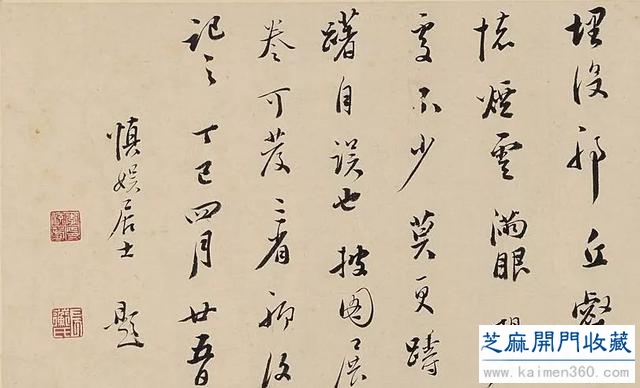 埋没邪丘壑
煙雲滿眼
處不少莫更躊
躇自誤也披圖展
卷可發省聊復
記之丁巳四月廿五日
慎娛居士題
芝麻開門收藏
www.kaimen360.com